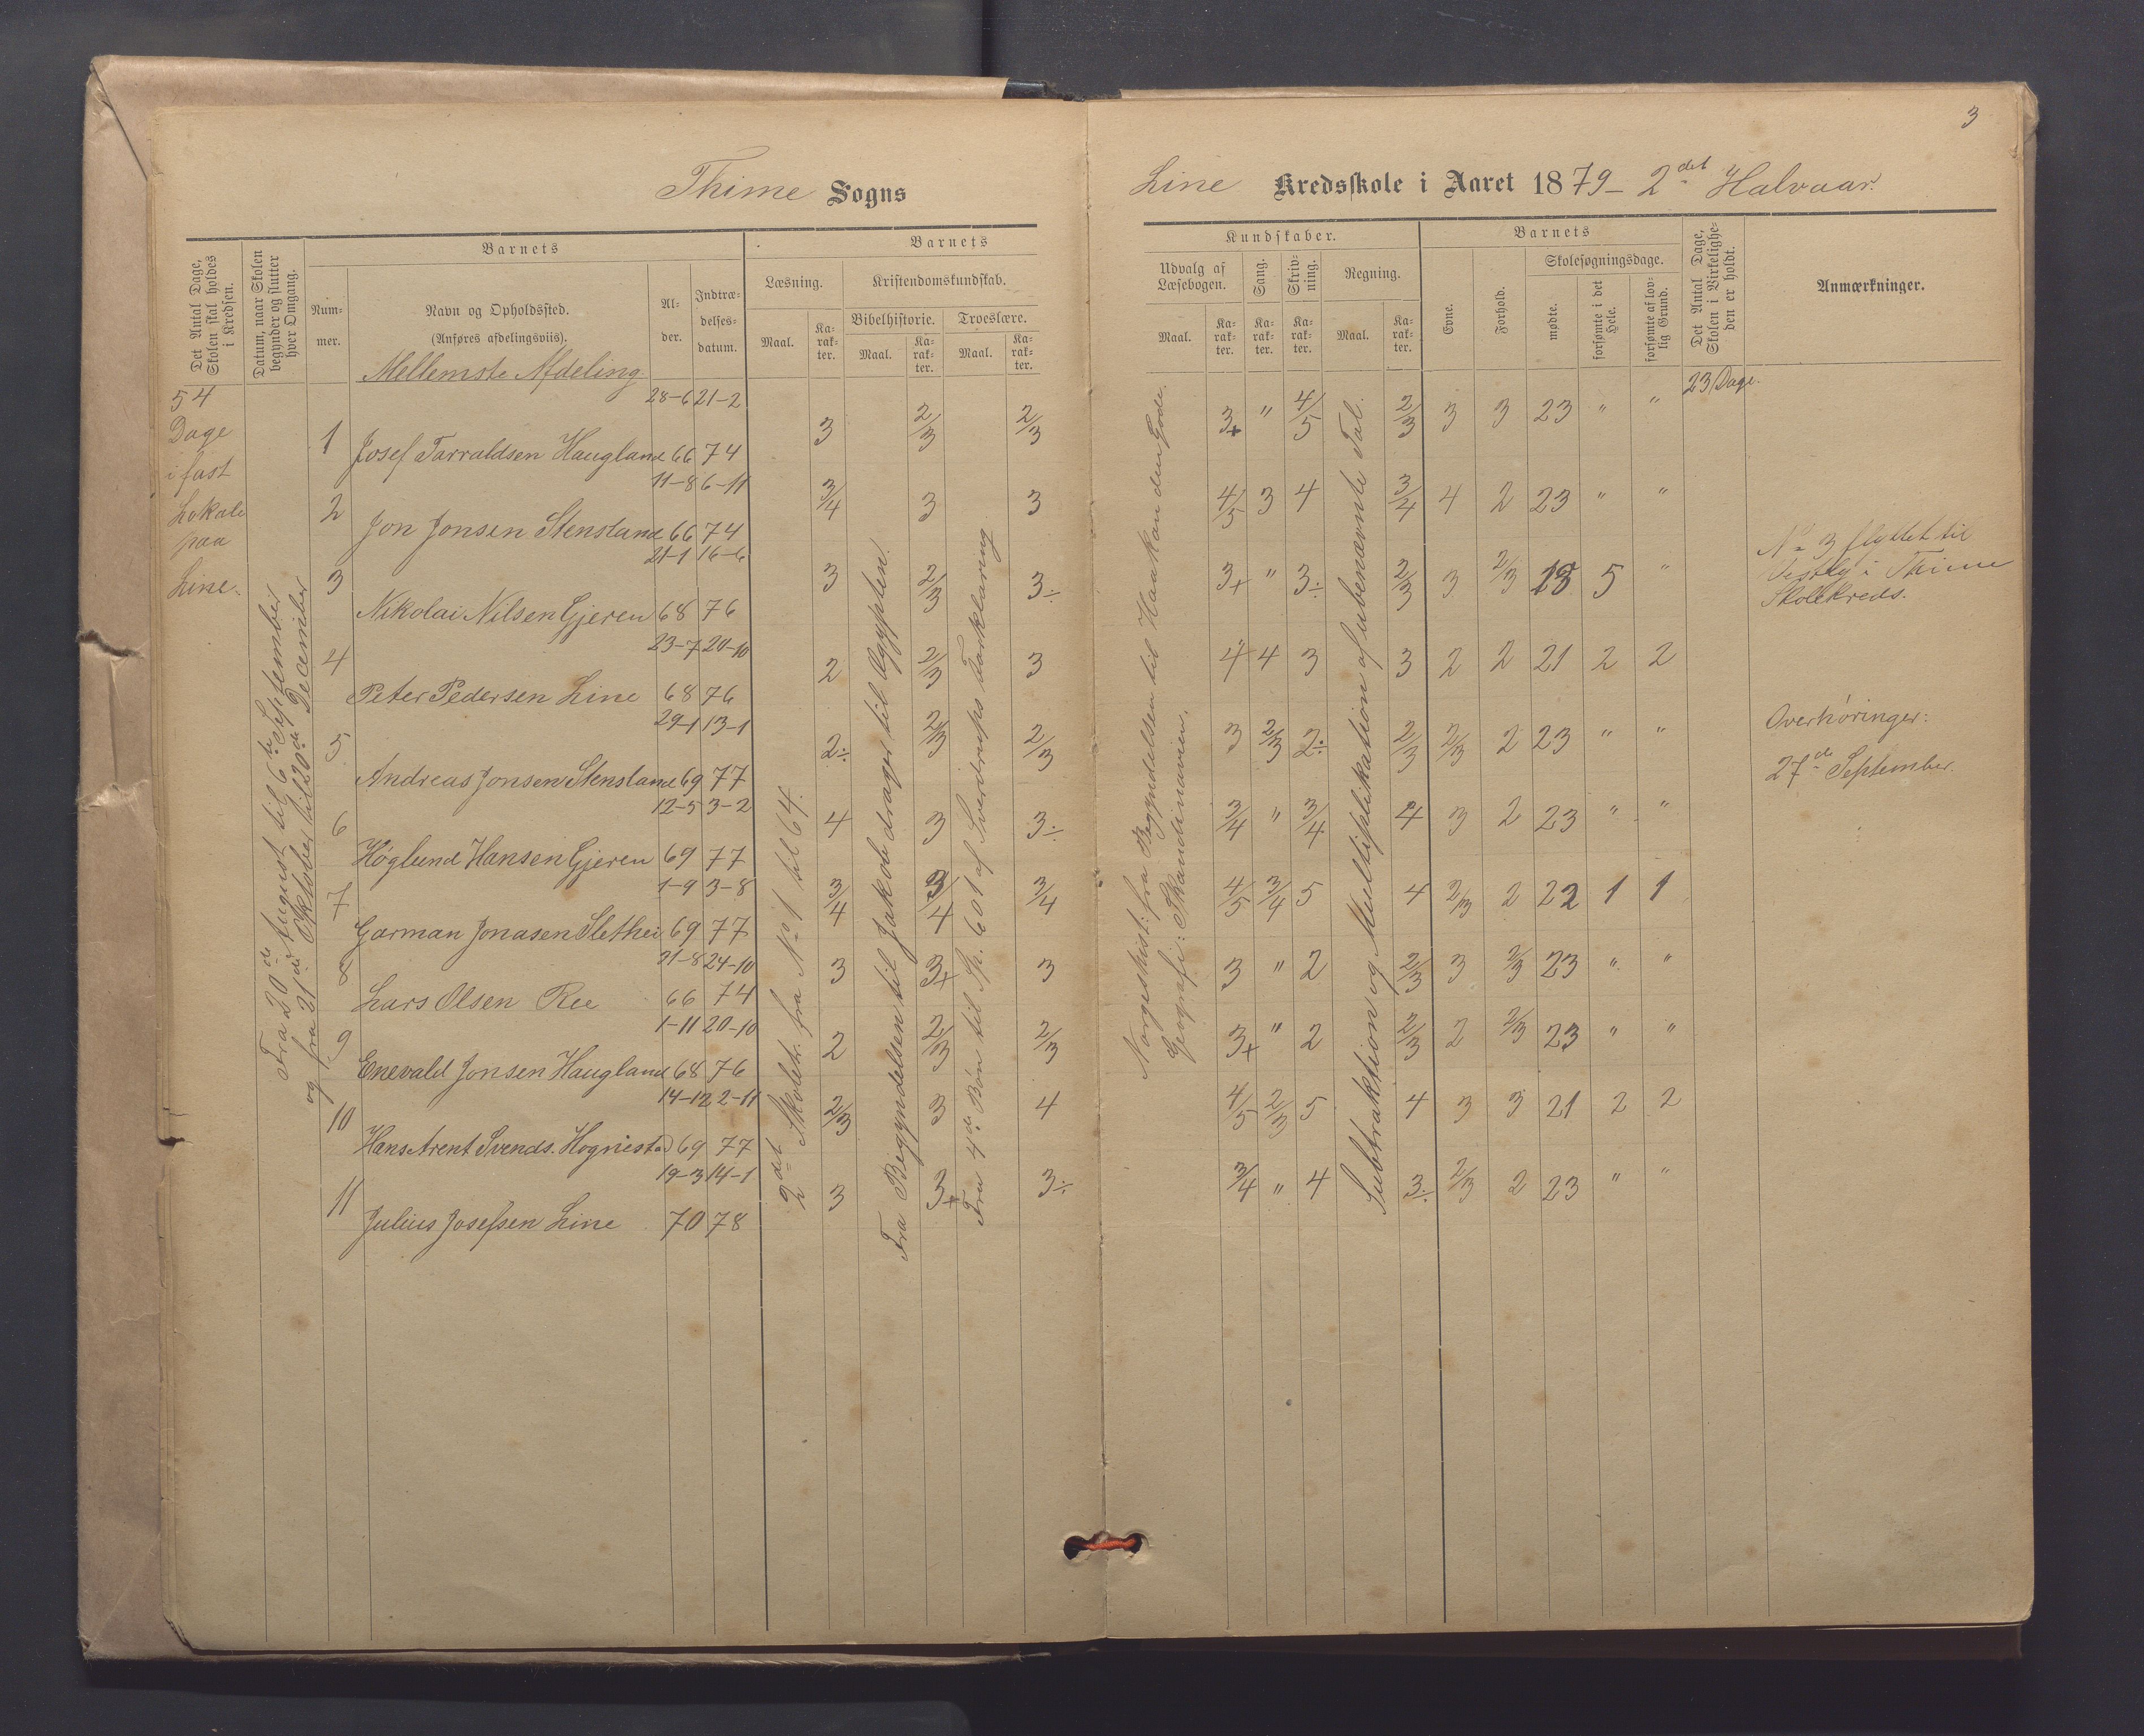 3
Thime Sogns
Line Kredsskole i Aaret 1879 - 2det Halvaar.
Det Antal Dage, Skolen skal holdes i Kredsen.
Datum, naar Skolen begynder og slutter hver Omgang.
Barnets
Num-mer.
Navn og Opholdssted.
(Anføres afdelingsviis).
Al-der.
Indtræ-delses-datum.
Barnets
Læsning.
Maal.
Ka-rak-ter.
Kristendomskundskab.
Bibelhistorie.
Maal.
Ka-rak-ter.
Troeslære.
Maal.
Ka-rak-ter.
Kundskaber.
Udvalg af Læsebogen.
Maal.
Ka-rak-ter.
Sang.
Ka-rak-ter.
Skriv-ning.
Ka-rak-ter.
Regning.
Maal.
Ka-rak-ter.
Barnets
Evne.
Forhold.
Skolesøgningsdage.
mødte.
forsømte i det Hele.
forsømte af lov-lig Grund.
Det Antal Dage, Skolen i Virkelighe-den er holdt.
Anmærkninger.
Mellemste Afdeling
54
Dage
i fast
Lokale
paa
Line.
Fra 20de August til 6te September
og fra 21de Oktober til 20de December
2det Skoletr. fra No 1 til 64.
Fra Begyndelsen til Jakob drager til Ægypten.
Fra 4de Bøn til Sp. 601 af Sverdrups Forklaring
Norgeshist: fra Begyndelsen til Haakan den Gode.
Geografi: Skandinavien.
Subtraktion og Multiplikation af ubenævnte Tal.
28-6 21-2
1 Josef Tarraldsen Haugland 66 74 3 2/3 2/3 3+ " 4/5 2/3 3 3 23 " " 23 Dage.
11-8 6-11
2 Jon Jonsen Stensland 66 74 3/4 3 3 4/5 3 4 3/4 4 2 23 " "
21-1 16-6
3 Nikolai Nilsen Gjeren 68 76 3 2/3 3÷ 3+ " 3÷ 2/3 3 2/3 18 5 "
23-7 20-10
4 Peter Pedersen Line 68 76 2 2/3 3 4 4 3 3 2 2 21 2 2
29-1 13-1
5 Andreas Jonsen Stensland 69 77 2÷ 2/3 2/3 3 2/3 2÷ 2/3 2/3 2 23 " "
12-5 3-2
6 Høglund Hansen Gjeren 69 77 4 3 3÷ 3/4 " 3/4 4 3 2 23 " "
1-9 3-8
7 Garman Jonasen Slethei 69 77 3/4 3/4 3/4 4/5 3/4 5 4 2/3 2 22 1 1
21-8 24-10
8 Lars Olsen Ree 66 74 3 3+ 3 3 " 2 2/3 3 2/3 23 " "
1-11 20-10
9 Enevald Jonsen Haugland 68 76 2 2/3 2/3 3+ " 2 2/3 2 2/3 23 " "
14-12 2-11
10 Hans Arent Svends. Hognestad 69 77 2/3 3 4 4/5 2/3 5 4 3 3 21 2 2
19-3 14-1
11 Julius Josefsen Line 70 78 3 3+ 3÷ 3/4 " 4 3÷ 2/3 2 23 " "
No 3 flyttet til
i Thime
Skolekreds.
Overhøringer:
27de September.